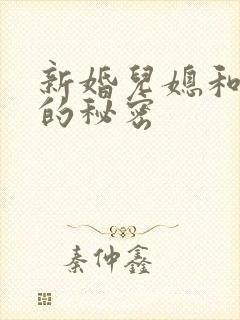 新婚兒媳和
的秘密
秦仲鑫